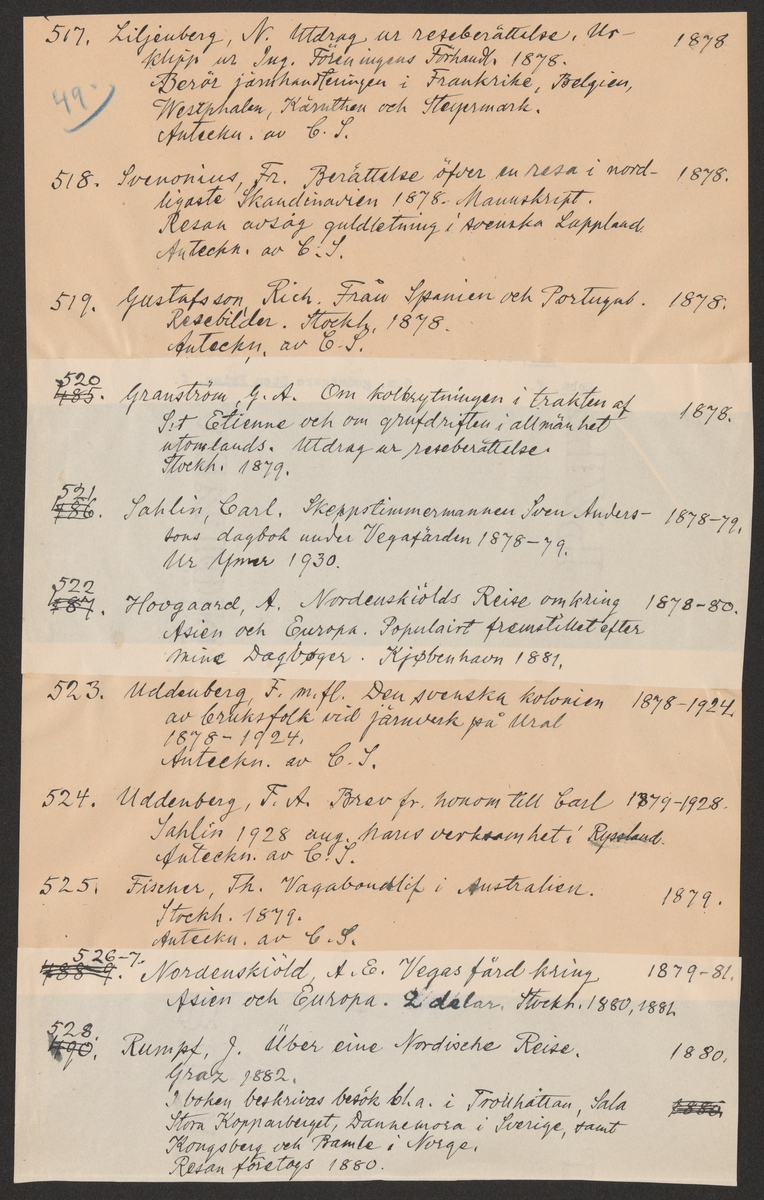 517. Liljenberg, N. Utdrag ur reseberättelse. Ur- 1878
klipp ur Ing. Föreningens Förhandl. 1878.
Berör järnhandteringen i Frankrike, Belgien,
49.
Westphalen, Kärnthen och Steyermark.
Anteckn. av C. S.
518. Svenonius, Fr. Berättelse öfver en resa i nord- 1878.
ligaste Skandinavien 1878. Manuskript.
Resan avsåg guldletning i svenska Lappland
Anteckn. av C. S.
519. Gustafsson, Rich. Från Spanien och Portugal. 1878.
Resebilder. Stockh. 1878.
Anteckn. av C. S.
520
485. Granström, G. A. Om kolbrytningen i trakten af 1878.
S:t Etienne och om grufdriften i allmänhet
utomlands. Utdrag ur reseberättelse.
Stockh. 1879.
521
486. Sahlin, Carl. Skeppstimmermannen Sven Anders- 1878-79.
sons dagbok under Vegafärden 1878-79.
Ur Ymer 1930.
522
487. Hovgaard, A. Nordenskiölds Reise omkring 1878-80.
Asien och Europa. Populairt fremstillet efter
mine Dagbøger. Kjøbenhavn 1881.
523. Uddenberg, F. m. fl. Den svenska kolonien 1878-1924.
av bruksfolk vid järnverk på Ural
1878-1924.
Anteckn. av C. S.
524. Uddenberg, F. A. Brev fr. honom till Carl 1879-1928.
Sahlin 1928 ang. hans verksamhet i Ryssland.
Anteckn. av C. S.
525. Fischer, Th. Vagabondlif i Australien. 1879.
Stockh. 1879.
Anteckn. av C. S.
526-7.
488-9. Nordenskiöld, A. E. Vegas färd kring 1879-81.
Asien och Europa. 2 delar. Stockh. 1880, 1881
528.
490. Rumpf, J. Über eine Nordische Reise. 1880.
Graz 1882.
I boken beskrivas besök bl.a. i Trollhättan, Sala 1880
Stora Kopparberget, Dannemora i Sverige, samt
Kongsberg och Bamle i Norge.
Resan företogs 1880.